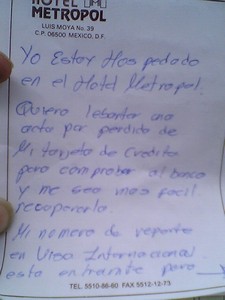 HOTEL M
METROPOL
LUIS MOYA No. 39
C.P. 06500 MEXICO, D.F.
Yo Estoy Hospedado
en el Hotel Metropol.
Quiero lebantar una
acta por perdida de
Mi tarjeta de Credito
para comprobar al banco
y me sea mas facil
recoperarla.
Mi numero de reporte
en Visa Internacional
esta en tramite pero
TEL. 5510-86-60 FAX 5512-12-73